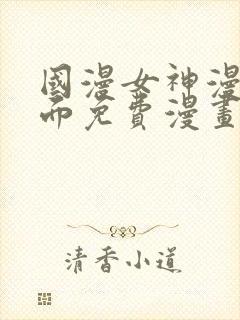 國漫女神漫
帀免費漫畫
清香小道